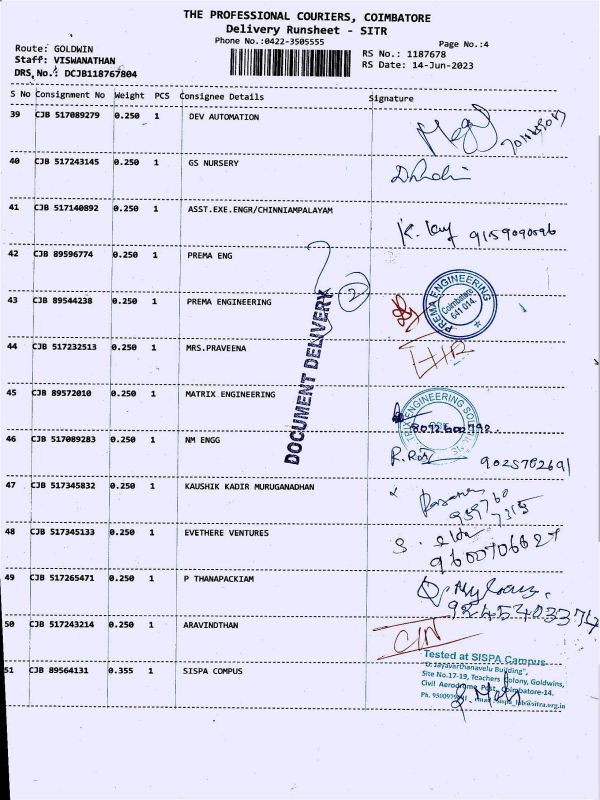 THE PROFESSIONAL COURIERS, COIMBATORE
Delivery Runsheet - SITR
Phone No.:0422-3505555
Page No.:4
Route: GOLDWIN
Staff: VISWANATHAN
DRS No.: DCJB118767804
RS No.: 1187678
RS Date: 14-Jun-2023
S No Consignment No Weight PCS Consignee Details Signature
39 CJB 517089279 0.250 1 DEV AUTOMATION
40 CJB 517243145 0.250 1 GS NURSERY
41 CJB 517140892 0.250 1 ASST.EXE.ENGR/CHINNIAMPALAYAM
K. 9159090596
42 CJB 89596774 0.250 1 PREMA ENG
2
43 CJB 89544238 0.250 1 PREMA ENGINEERING
PREMA ENGINEERING
Coimbatore
641 014.
DOCUMENT DELIVERY
44 CJB 517232513 0.250 1 MRS.PRAVEENA
45 CJB 89572010 0.250 1 MATRIX ENGINEERING
ENGINEERING
46 CJB 517089283 0.250 1 NM ENGG
9025702691
47 CJB 517345832 0.250 1 KAUSHIK KADIR MURUGANADHAN
48 CJB 517345133 0.250 1 EVETHERE VENTURES
49 CJB 517265471 0.250 1 P THANAPACKIAM
50 CJB 517243214 0.250 1 ARAVINDTHAN
51 CJB 89564131 0.355 1 SISPA COMPUS
Tested at SISPA Campus
"D. Jayavarthanavelu Building",
Site No.17-19, Teachers Colony, Goldwins,
Civil Aerodrome Post, Coimbatore-14.